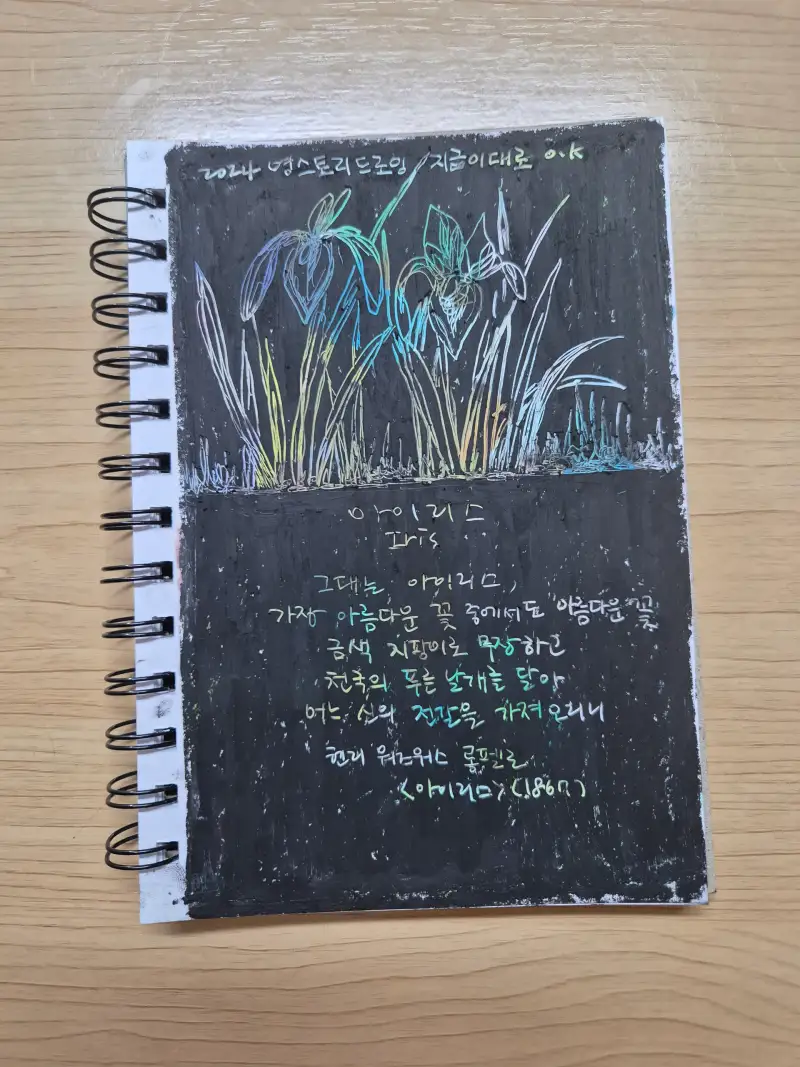 2024 명스토리드로잉 지금이대로 O.K
아이리스
Iris
그대는, 아이리스,
가장 아름다운 꽃 중에서도 아름다운 꽃
금색 지팡이로 무장하고
천국의 푸른 날개를 달아
어느 신의 전갈을 가져오리니
헨리 워즈워스 롱펠로
<아이리스> (1867)